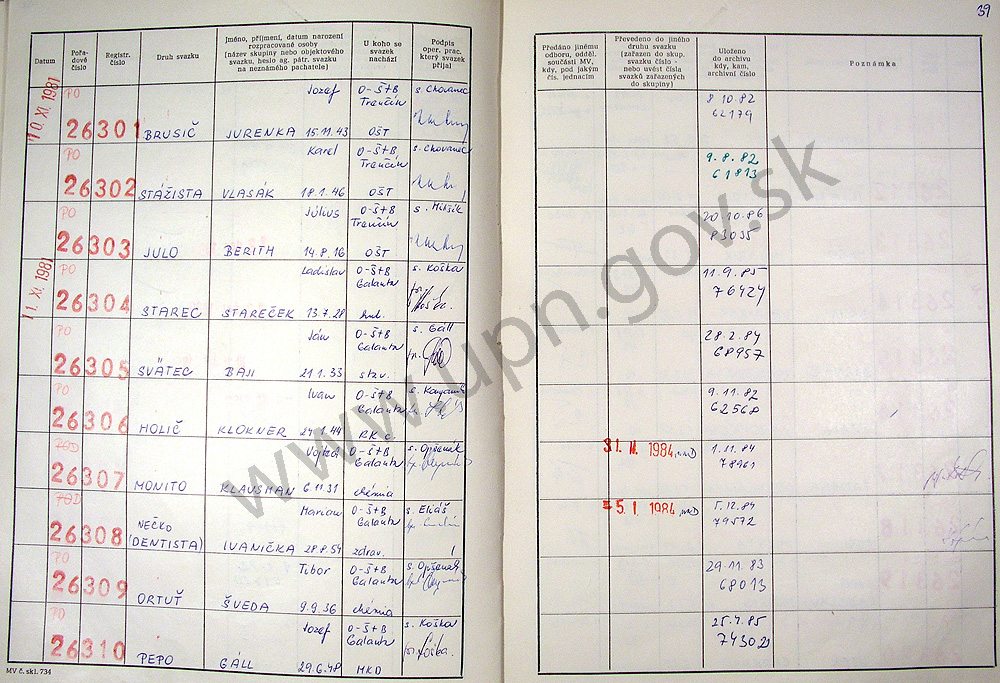 39
Datum
Pořa-
dové
číslo
Registr.
číslo
Druh svazku
Jméno, příjmení, datum narození
rozpracované osoby
(název skupiny nebo objektového
svazku, heslo ag. pátr. svazku
na neznámého pachatele)
U koho se
svazek
nachází
Podpis
oper. prac.
který svazek
přijal
Předáno jinému
odboru, odděl.
součásti MV,
kdy, pod jakým
čís. jednacím
Převedeno do jiného
druhu svazku
(zařazen do skup.
svazku číslo -
nebo uvést čísla
svazků zařazených
do skupiny)
Uloženo
do archivu
kdy, kam,
archivní číslo
Poznámka
10. XI. 1981
PO Jozef O-Š+B s. Chovanec 8.10.82
Trenčín 62179
26301 BRUSIČ JURENKA 15.11.43 OŠT
PO Karel O-Š+B s. Chovanec 9.8.82
Trenčín 61813
26302 STÁŽISTA VLASÁK 18.1.46 OŠT
PO Július O-Š+B s. Mikšík 20.10.86
Trenčín 83035
26303 JULO BERITH 14.8.16 OŠT
11. XI. 1981
PO Ladislav O-Š+B s. Koška 11.9.85
Galanta 76424
26304 STAREC STAREČEK 13.7.28
PO Ján O-Š+B s. Gáll 28.2.84
Galanta 68957
26305 SVÄTEC BAJI 21.1.33
PO Ivan O-Š+B 9.11.82
Galanta 62568
26306 HOLIČ KLOKNER 27.1.44 RKC.
POD Vojtech O-Š+B s. Opšenák 1.11.84
Galanta 78961
26307 MONITO KLAUSMAN 6.11.31 chémia
POD Marian O-Š+B s. Eliáš -5. I. 1984 5.12.84
NEČKO Galanta 79572
26308 (DENTISTA) IVANIČKA 28.8.54 zdrav.
PO Tibor O-Š+B s. Opšenák 29.11.83
Galanta 68013
26309 ORTUŤ ŠVEDA 9.9.36 chémia
PO Jozef O-Š+B s. Koška 25.4.85
Galanta
26310 PEPO GÁLL 29.6.48 MKD
MV č. skl. 734
www.upn.gov.sk